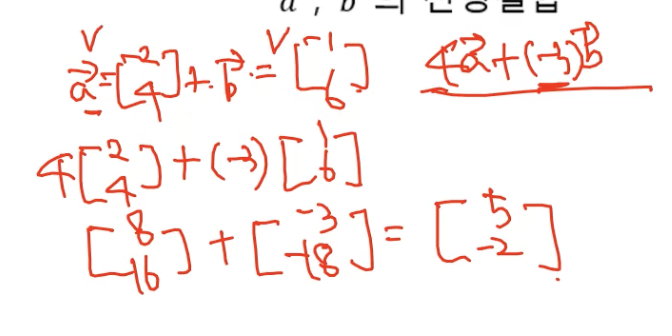 a⃗, b⃗ 의 선형결합
v v
a⃗=[2 4]+b⃗=[1 6] 4a⃗+(-3)b⃗
4[2 4]+(-3)[1 6]
[8 16]+[-3 -18]=[5 -2]